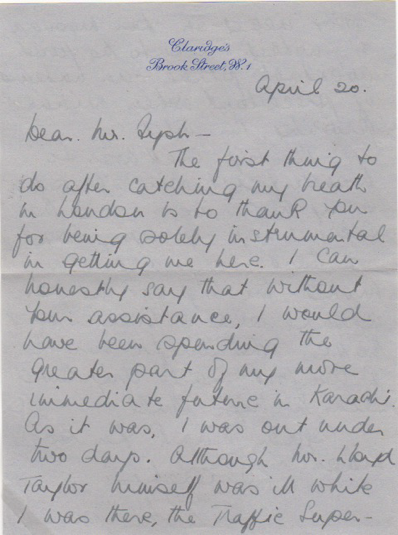 Claridge's
Brook Street, W.1
April 20.
Dear Mr. Tysh —
The first thing to
do after catching my breath
in London is to thank you
for being solely instrumental
in getting me here. I can
honestly say that without
your assistance, I would
have been spending the
greater part of my more
immediate future in Karachi.
As it was, I was out under
two days. Although Mr. Lloyd
Taylor himself was ill while
I was there, the Traffic Super-